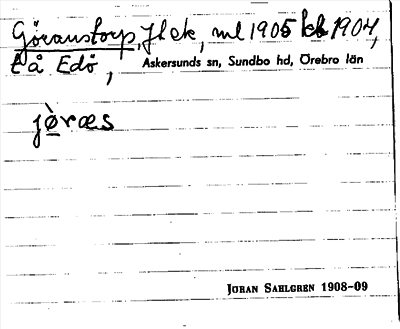 Göranstorp, Jlek, ml 1905 kb 1904,
t å Edö, Askersunds sn, Sundbo hd, Örebro län
jòræs
JÖRAN SAHLGREN 1908-09